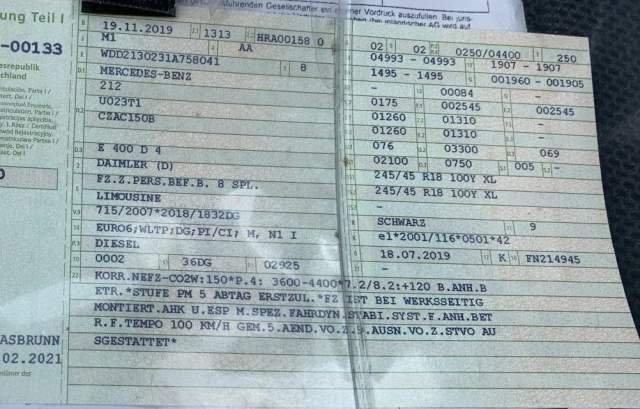 ung Teil I
-00133
esrepublik
chland
19.11.2019 1313 HRA00158 0
M1 AA
WDD2130231A758041 8
MERCEDES-BENZ
212
U023T1
CZAC150B
E 400 D 4
DAIMLER (D)
FZ.Z.PERS.BEF.B. 8 SPL.
LIMOUSINE
715/2007*2018/1832DG
EURO6;WLTP;DG;PI/CI; M, N1 I
DIESEL
0002 36DG 02925
02 02 0250/04400 250
04993 - 04993 1907 - 1907
1495 - 1495 001960 -001905
- 00084 -
0175 002545 002545
01260 01310 -
01260 01310 -
076 03300 069
02100 0750 005 -
245/45 R18 100Y XL
245/45 R18 100Y XL
-
SCHWARZ 9
e1*2001/116*0501*42
18.07.2019 K FN214945
-
KORR.NEFZ-CO2W:150*P.4: 3600-4400*7.2/8.2:+120 B.ANH.B
ETR.*STUFE PM 5 ABTAG ERSTZUL.*FZ IST BEI WERKSSEITIG
MONTIERT.AHK U.ESP M.SPEZ.FAHRDYN.STABI.SYST.F.ANH.BET
R.F.TEMPO 100 KM/H GEM.5.AEND.VO.Z.9.AUSN.VO.Z.STVO AU
SGESTATTET*
ASBRUNN
02.2021